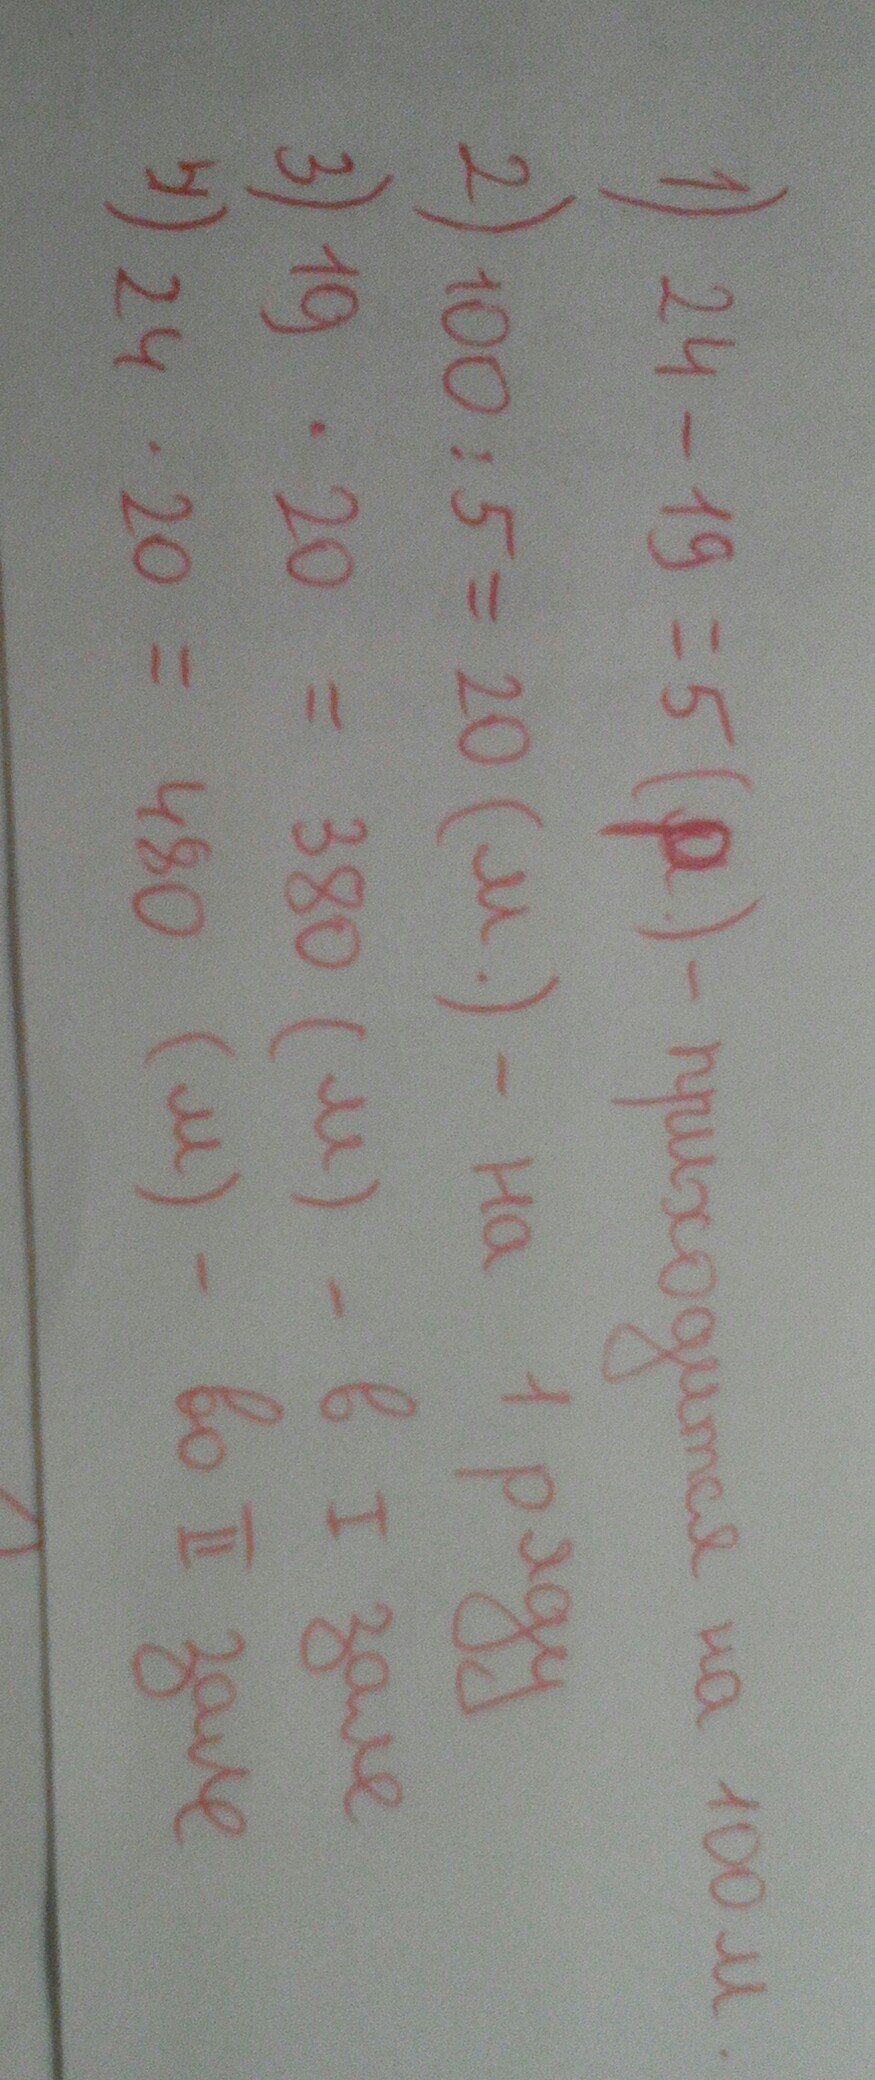 1) 24 - 19 = 5 (р.) - приходится на 100 м.
2) 100 : 5 = 20 (м.) - на 1 ряду
3) 19 · 20 = 380 (м) - в I зале
4) 24 · 20 = 480 (м) - во II зале